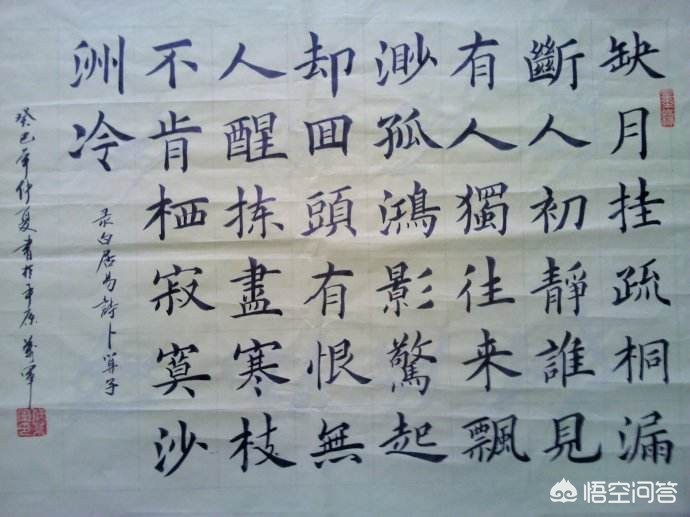 缺月挂疏桐漏
斷人初靜誰見
有人獨往来飄
渺孤鴻影驚起
却回頭有恨無
人醒拣盡寒枝
不肯栖寂寞沙
洲冷
录白居易詩卜算子
癸巳年仲夏書於平原
悟空问答